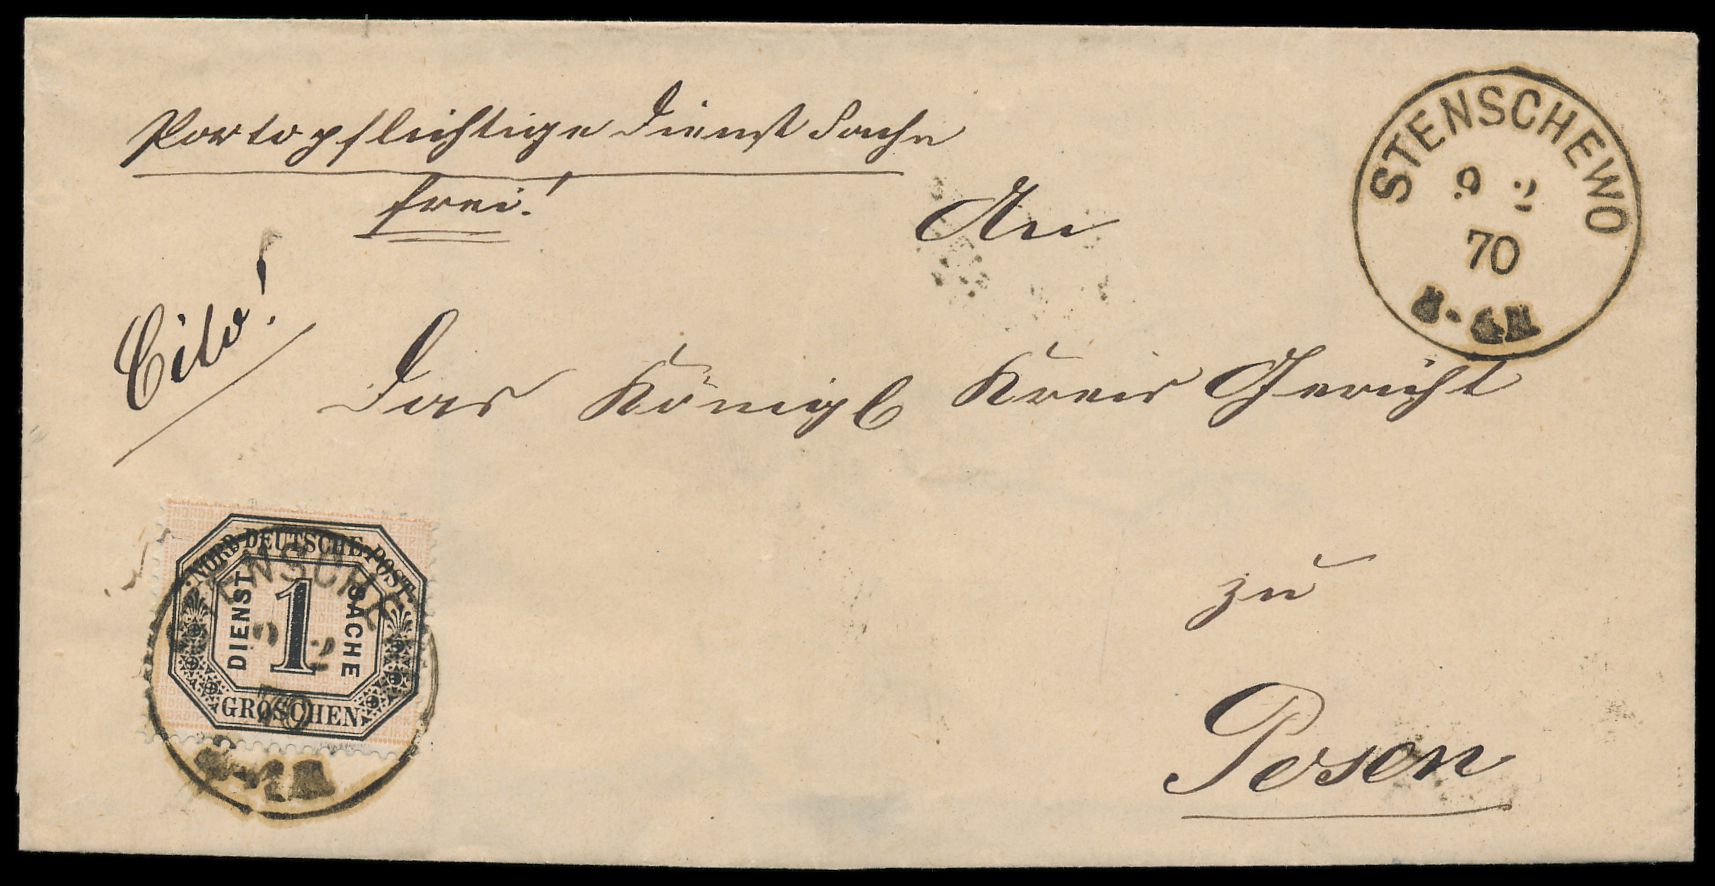 Portopflichtige Dienst Sache
frei!
Cito!
An
Das Königl Kreis Gericht
zu
Posen
STENSCHEWO
9 2
70
NORD-DEUTSCHE-POST
DIENST 1 SACHE
GROSCHEN
9 2
70